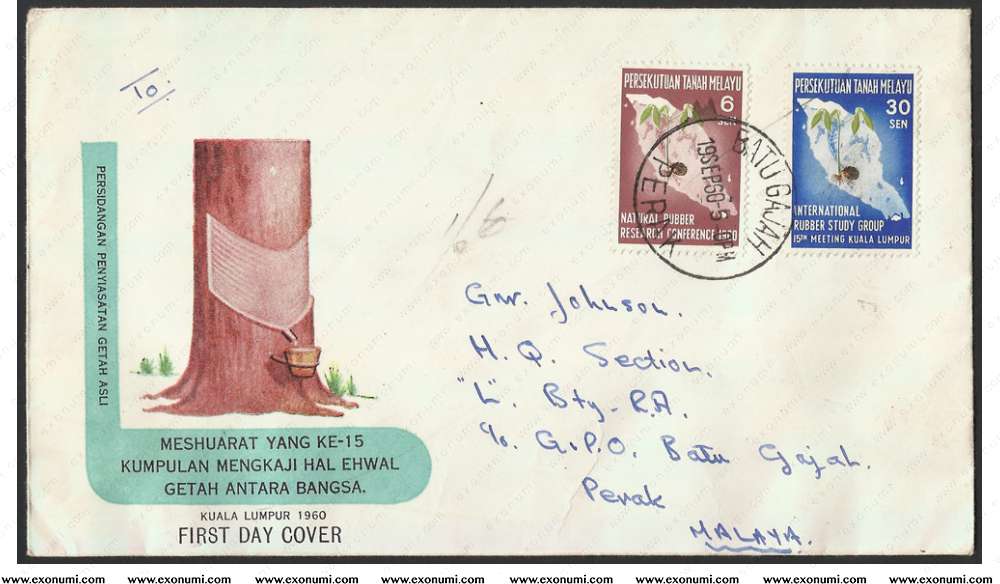 To:
PERSIDANGAN PENYIASATAN GETAH ASLI
MESHUARAT YANG KE-15
KUMPULAN MENGKAJI HAL EHWAL
GETAH ANTARA BANGSA.
KUALA LUMPUR 1960
FIRST DAY COVER
1/6
PERSEKUTUAN TANAH MELAYU
6
SEN
NATURAL RUBBER
RESEARCH CONFERENCE 1960
PERSEKUTUAN TANAH MELAYU
30
SEN
INTERNATIONAL
RUBBER STUDY GROUP
15TH MEETING KUALA LUMPUR
BATU GAJAH
19SEP60
PERAK
Gnr. Johnson.
H. Q. Section.
"L". Bty. R.A.
c/o. G.P.O. Batu Gajah.
Perak
MALAYA.
www.exonumi.com www.exonumi.com www.exonumi.com www.exonumi.com www.exonumi.com www.exonumi.com www.exonumi.com www.exonumi.com